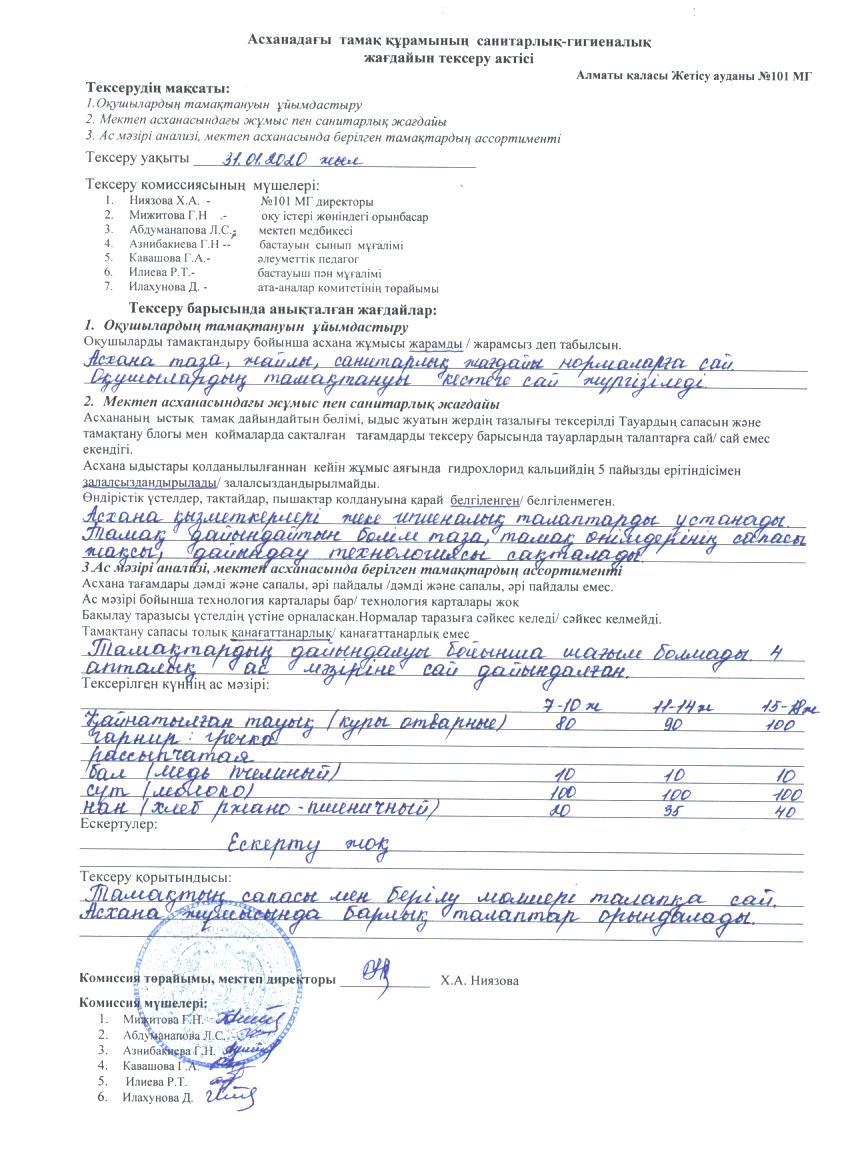 Асханадағы тамақ құрамының санитарлық-гигиеналық
жағдайын тексеру актісі
Алматы қаласы Жетісу ауданы №101 МГ
Тексерудің мақсаты:
1.Оқушылардың тамақтануын ұйымдастыру
2. Мектеп асханасындағы жұмыс пен санитарлық жағдайы
3. Ас мәзірі анализі, мектеп асханасында берілген тамақтардың ассортименті
Тексеру уақыты 31.01.2020 жыл
Тексеру комиссиясының мүшелері:
1. Ниязова Х.А. - №101 МГ директоры
2. Мижитова Г.Н .- оқу істері жөніндегі орынбасар
3. Абдуманапова Л.С.- мектеп медбикесі
4. Азнибакиева Г.Н -- бастауын сынып мұғалімі
5. Кавашова Г.А.- әлеуметтік педагог
6. Илиева Р.Т.- бастауыш пән мұғалімі
7. Илахунова Д. - ата-аналар комитетінің төрайымы
Тексеру барысында анықталған жағдайлар:
1. Оқушылардың тамақтануын ұйымдастыру
Оқушыларды тамактандыру бойынша асхана жұмысы жарамды / жарамсыз деп табылсын.
Асхана таза, жайлы, санитарлық жағдайы нормаларға сай.
Оқушылардың тамақтануы кестеге сай жүргізіледі.
2. Мектеп асханасындағы жұмыс пен санитарлық жағдайы
Асхананың ыстық тамақ дайындайтын бөлімі, ыдыс жуатын жердің тазалығы тексерілді Тауардың сапасын және
тамақтану блогы мен қоймаларда сақталған тағамдарды тексеру барысында тауарлардың талаптарға сай/ сай емес
екендігі.
Асхана ыдыстары қолданылылғаннан кейін жұмыс аяғында гидрохлорид кальцийдің 5 пайызды ерітіндісімен
залалсыздандырылады/ залалсыздандырылмайды.
Өндірістік үстелдер, тақтайдар, пышақтар колдануына қарай белгіленген/ белгіленмеген.
Асхана қызметкерлері жеке гигиеналық талаптарды ұстанады.
Тамақ дайындайтын бөлім таза, тамақ өнімдерінің сапасы
жақсы, дайындау технологиясы сақталады.
3.Ас мәзірі анализі, мектеп асханасында берілген тамақтардың ассортименті
Асхана тағамдары дәмді және сапалы, әрі пайдалы /дәмді және сапалы, әрі пайдалы емес.
Ас мәзірі бойынша технология карталары бар/ технология карталары жоқ
Бақылау таразысы үстелдің үстіне орналаскан.Нормалар таразыға сәйкес келеді/ сәйкес келмейді.
Тамақтану сапасы толық қанағаттанарлық/ қанағаттанарлық емес
Тамақтардың дайындалуы бойынша шағым болмады. 4
апталық ас мәзіріне сай дайындалған.
Тексерілген күннің ас мәзірі:
7-10 ж 11-14 ж 15-18 ж
Қайнатылған тауық (куры отварные) 80 90 100
гарнир : гречка
рассыпчатая
бал (медь пчелиный) 10 10 10
сүт (молоко) 100 100 100
нан (хлеб ржано-пшеничный) 20 35 40
Ескертулер:
Ескерту жоқ
Тексеру қорытындысы:
Тамақтың сапасы мен берілу мөлшері талапқа сай.
Асхана жұмысында барлық талаптар орындалады.
Комиссия төрайымы, мектеп директоры Х.А. Ниязова
Комиссия мүшелері:
1. Мижитова Г.Н.
2. Абдуманапова Л.С.
3. Азнибакиева Г.Н.
4. Кавашова Г.А.
5. Илиева Р.Т.
6. Илахунова Д.